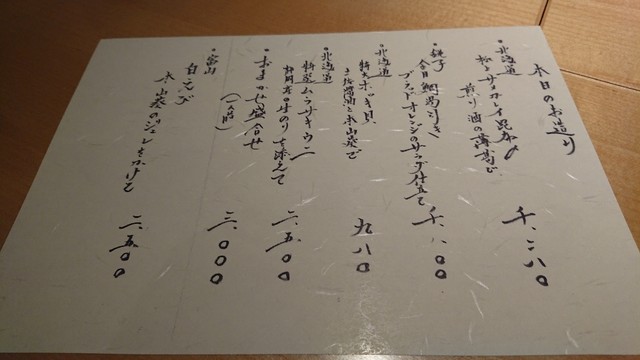 本日のお造り
・北海道
松川カレイ昆布〆
煎り酒の薄葛で
千、二八〇
・銚子
金目鯛焼き
ブラッドオレンジのサラダ仕立て
千、八〇〇
・北海道
特大ホッキ貝
土佐醤油と本山葵で
九八〇
・北海道
特選ムラサキウニ
静岡まるのりを添えて
二、五〇〇
・おまかせ盛合せ
(一名)
三、〇〇〇
・富山
白エビ
本山葵のジュレをかけて
二、五〇〇